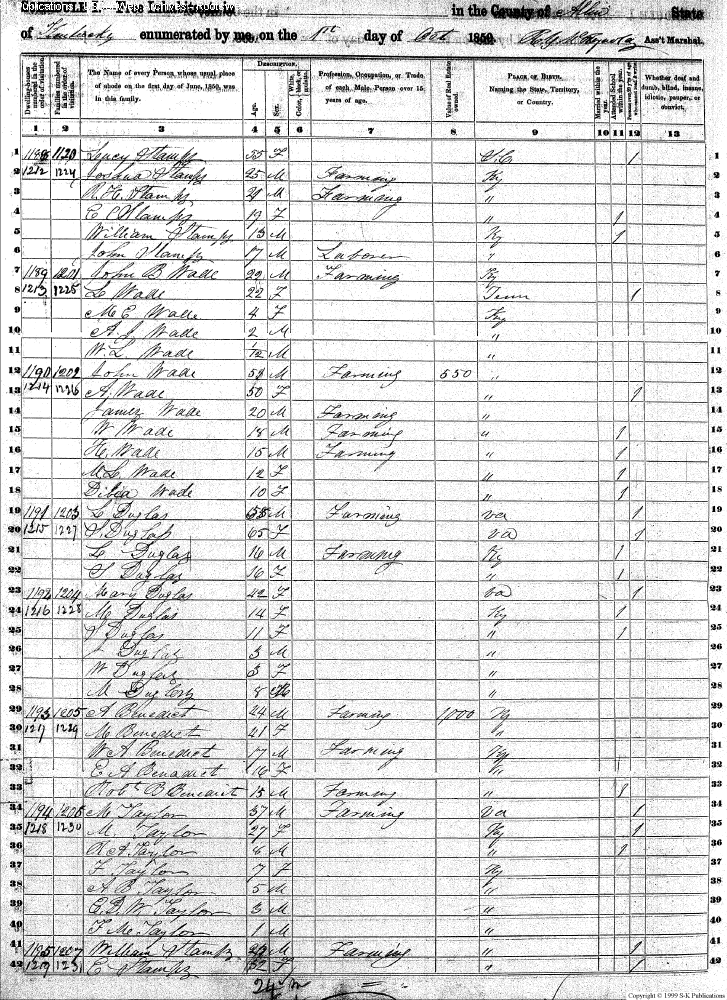 in the County of Allen State
of Kentucky enumerated by me, on the 1st day of Oct 1850. Ass't Marshal.
Dwelling-houses numbered in the order of visitation.
Families numbered in the order of visitation.
The Name of every Person whose usual place of abode on the first day of June, 1850, was in this family.
DESCRIPTION.
Age.
Sex.
White, black, or mulatto. Color,
Profession, Occupation, or Trade of each Male Person over 15 years of age.
Value of Real Estate owned.
PLACE OF BIRTH. Naming the State, Territory, or Country.
Married within the year.
Attended School within the year.
Whether deaf and dumb, blind, insane, idiotic, pauper, or convict.
1 2 3 4 5 6 7 8 9 10 11 12 13
1 1120 Lucy Stamps 55 F 1 1
2 1212 1224 Joshua Stamps 25 M Farming Ky 2
3 R. H. Stamps 21 M Farming " 3
4 E C Stamps 19 F " 1 4
5 William Stamps 13 M Ky 1 5
6 John Stamps 17 M Laborer 6
7 1189 1201 John B Wade 29 M Farming Ky 7
8 1213 1225 L Wade 22 F Tenn 1 8
9 M E Wade 4 F Ky 9
10 A. J. Wade 2 M " 10
11 W. L. Wade /12 M " 11
12 1190 1202 John Wade 58 M Farming 550 " 12
13 1214 1226 A. Wade 50 F " 1 13
14 James Wade 20 M Farming " 14
15 W Wade 18 M Farming " 1 15
16 H. Wade 15 M Farming " 1 16
17 M L Wade 12 F " 1 17
18 Wade 10 F " 1 18
19 1191 1203 L Duglas M Farming Va 1 19
20 1215 1227 S Duglas 65 F Va 1 20
21 L Duglas 16 M Farming Ky 1 21
22 S Duglas 16 F " 1 22
23 1192 1204 Mary Duglas 42 F Va 1 23
24 1216 1228 M Duglas 14 F Ky 1 24
25 S Duglas 11 F " 1 25
26 Duglas 3 M " 26
27 W Duglas 3 F " 27
28 M Duglas 8 " 28
29 1193 1205 A Benedict 24 M Farming 1,000 Ky 29
30 1217 1229 M Benedict 41 F " 30
31 W A Benedict 17 M Farming Ky 31
32 E A Benedict 16 F " 32
33 Robt B Benedict 15 M Farming " 1 33
34 1194 1206 M Taylor 37 M Farming Va 1 34
35 1218 1230 M. Taylor 27 F Ky 1 35
36 R A Taylor 8 M " 1 36
37 F Taylor 7 F Ky 37
38 A B Taylor 5 M " 38
39 G. W Taylor 3 M " 39
40 F M Taylor 1 M " 40
41 1195 1207 William Stamps M Farming " 1 41
42 1219 1231 E Stamps F " 1 42
Copyright © 1999 S-K Publications